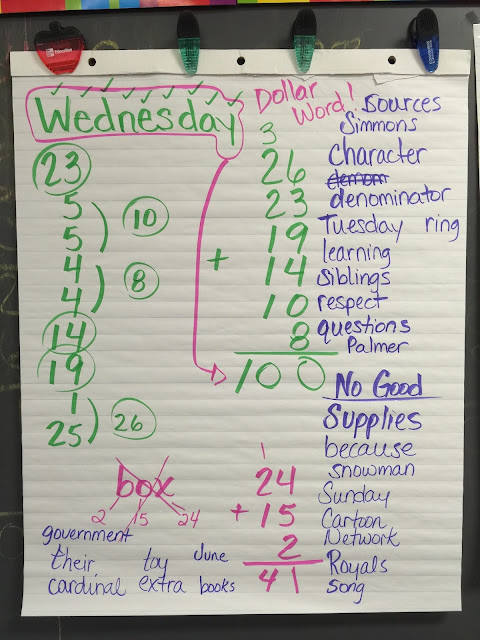 Wednesday
23
5
5
10
4
4
8
14
19
1
25
26
Dollar
Word!
3
26
23
19
+ 14
10
8
100
Sources
Simmons
character
denominator
Tuesday ring
learning
siblings
respect
questions
Palmer
No Good
Supplies
because
snowman
Sunday
Cartoon
Network
Royals
song
box
2 15 24
1
24
+ 15
2
41
government
their toy June
cardinal extra books